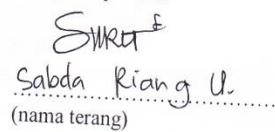 Sabda Riang U.
(nama terang)